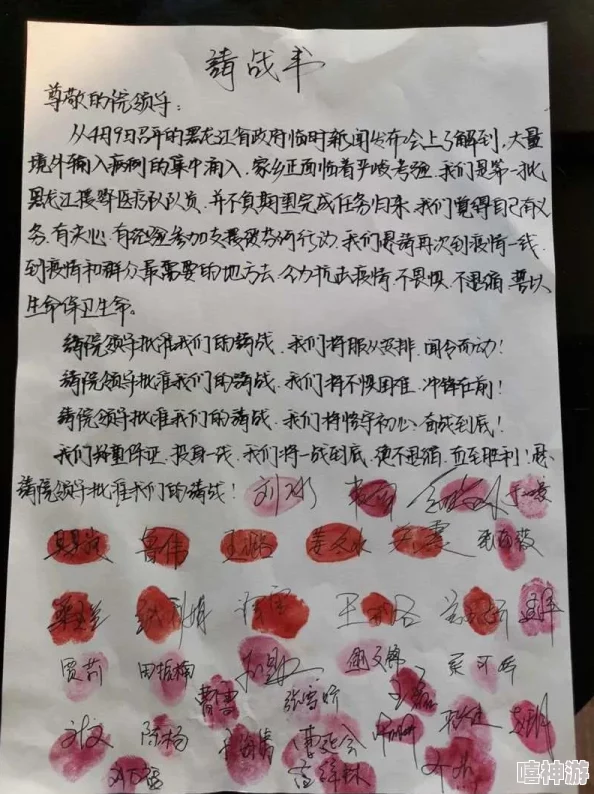 请战书
尊敬的院领导：
从4月9日召开的黑龙江省政府临时新闻发布会上了解到，大量
境外输入病例的集中涌入，家乡正面临着严峻考验，我们是第一批
黑龙江援鄂医疗队队员，并不负期望完成任务归来，我们觉得自己有义
务、有决心、有经验参加支援绥芬河行动，我们恳请再次到疫情一线，
到疫情和群众最需要的地方去，全力抗击疫情，不畏惧、不退缩，誓以
生命保卫生命。
请院领导批准我们的请战，我们将服从安排，闻令而动！
请院领导批准我们的请战，我们将不惧困难，冲锋在前！
请院领导批准我们的请战，我们将恪守初心，奋战到底！
我们郑重保证，投身一线，我们将一战到底，绝不退缩，直至胜利！恳
请院领导批准我们的请战！刘冰
鲁伟 姜文冰
王
贾莉 田振楠
曹雪 张雪娇
刘文 陈杨
嘻神游